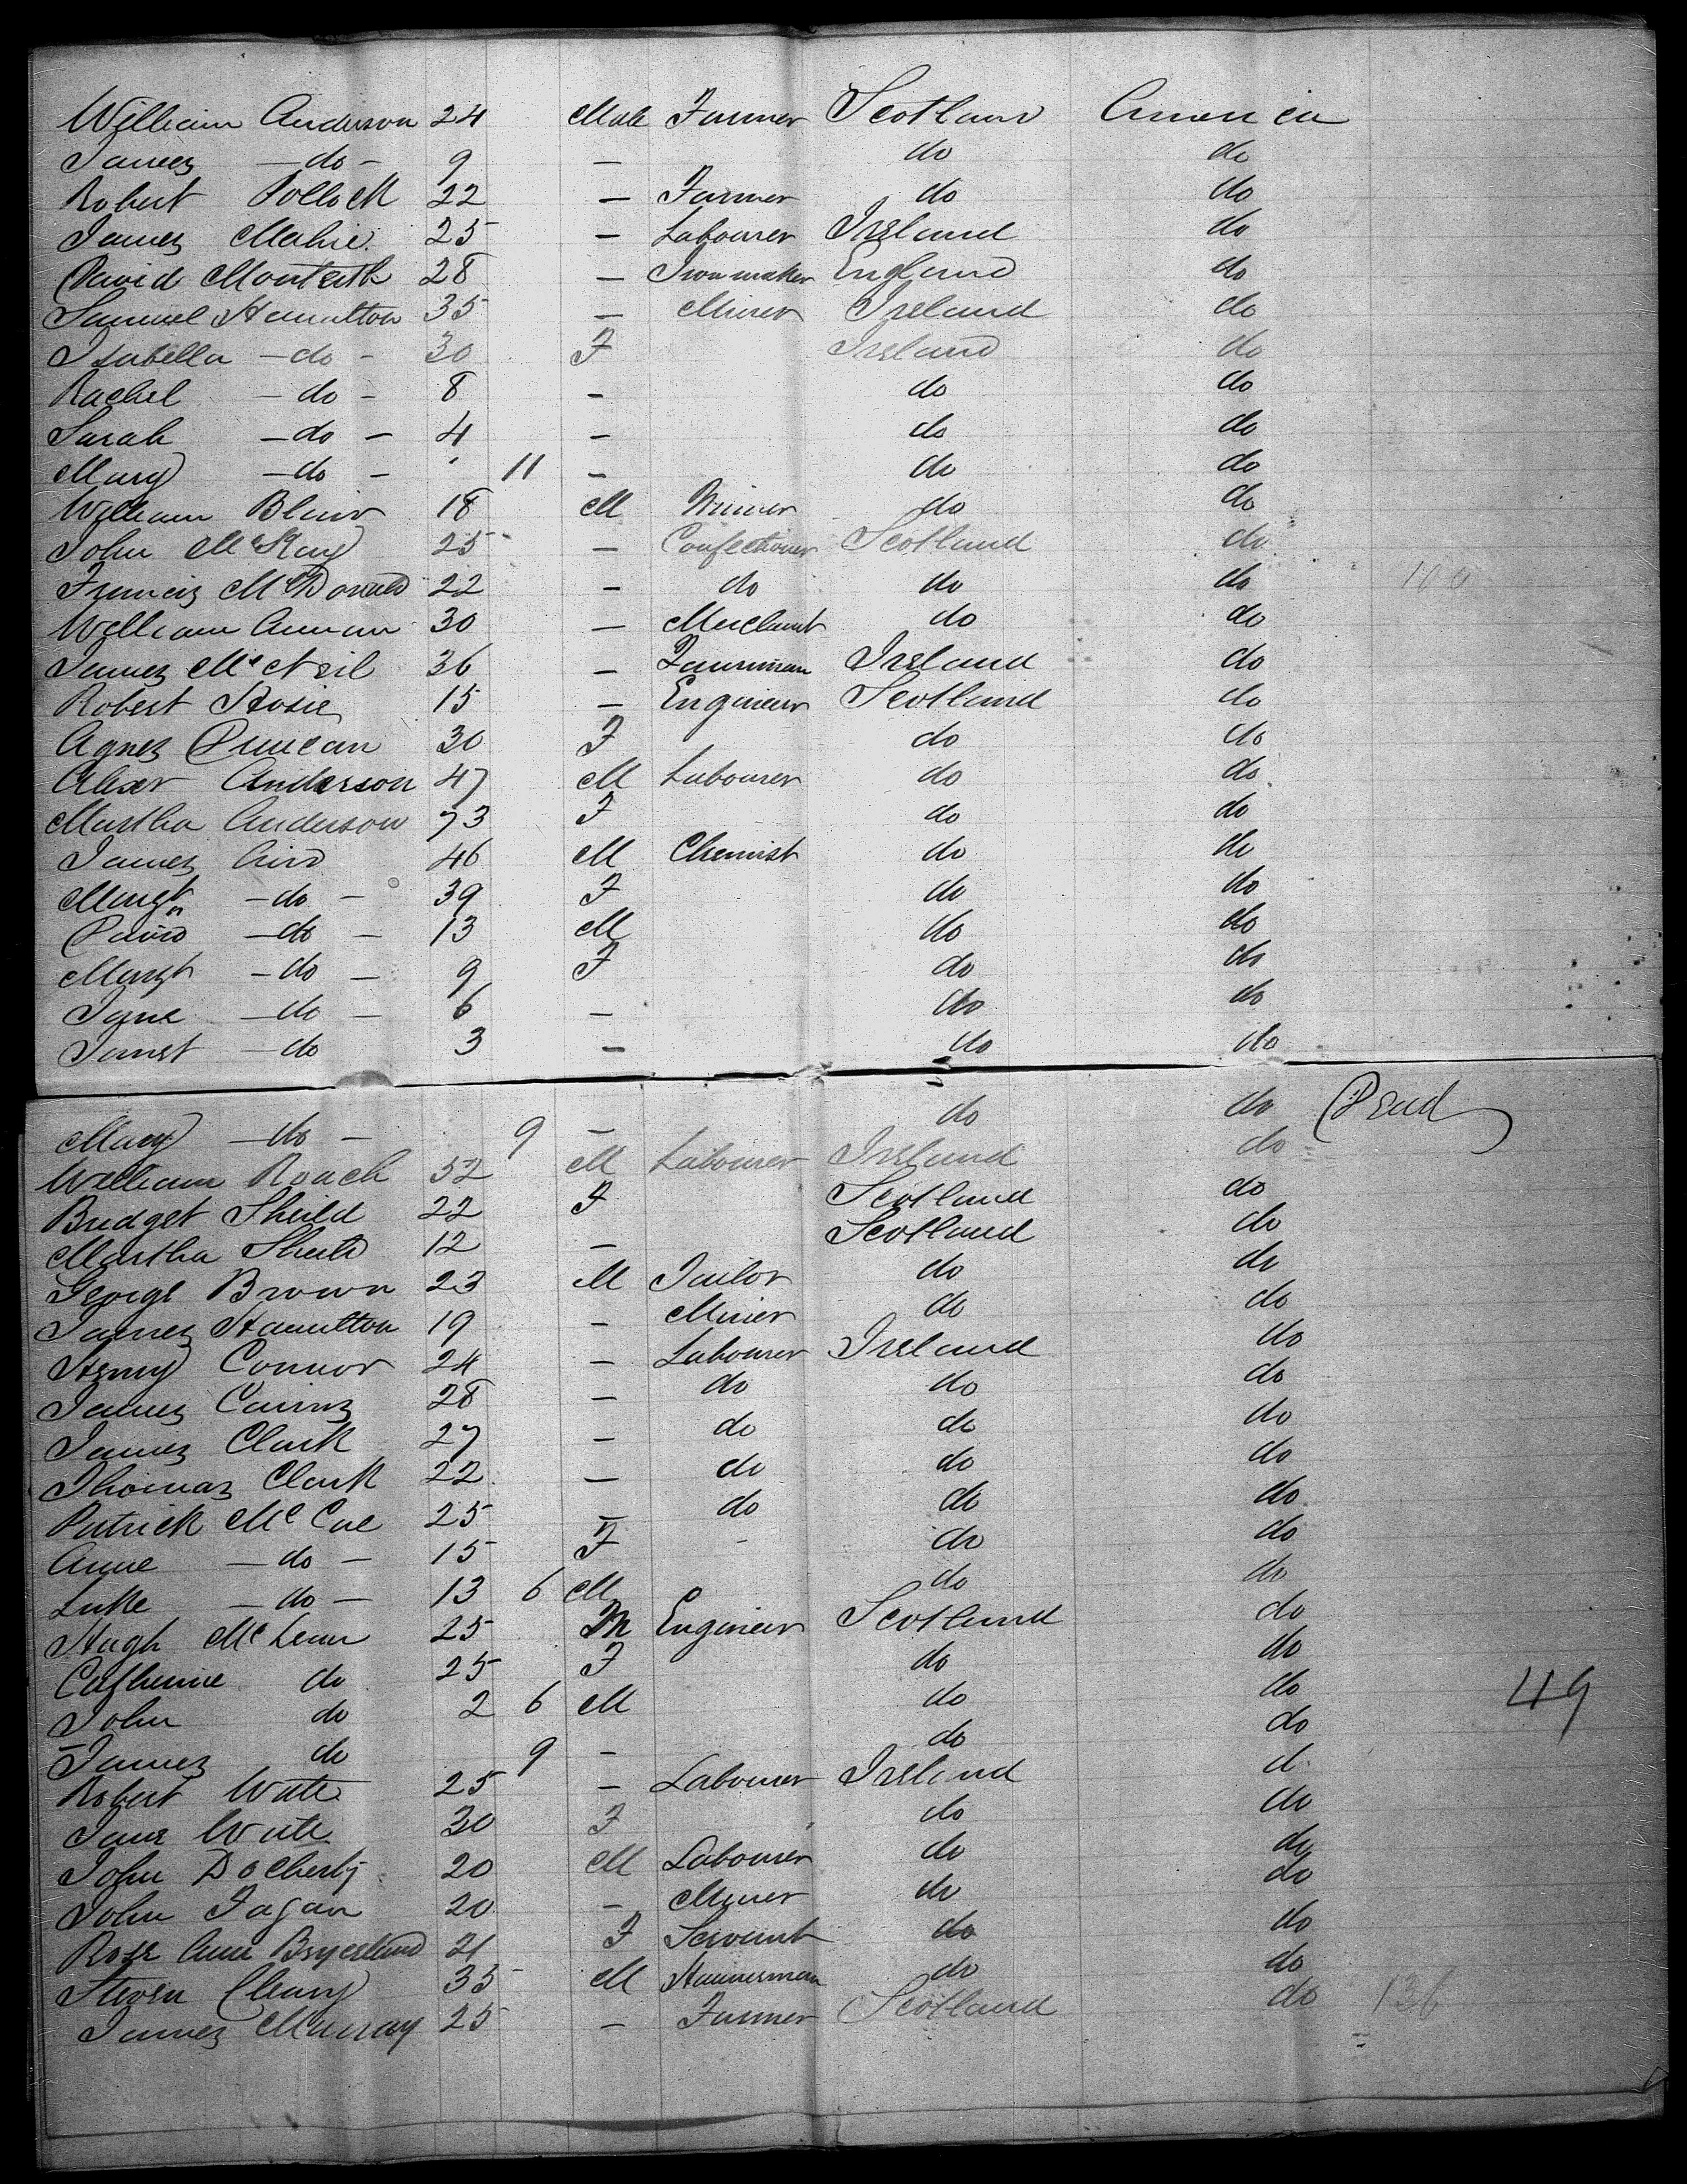 William Anderson 24 Male Farmer Scotland America
James — do — 9 — do do
Robert Pollock 22 — Farmer do do
James 25 — Labourer Ireland do
David Monteith 28 — Iron maker England do
Samuel Hamilton 35 — Miner Ireland do
Isabella — do — 30 F Ireland do
Rachel — do — 8 — do do
Sarah — do — 4 — do do
Mary — do — 11 — do do
William Blair 18 M Miner do do
John McKay 25 — Confectioner Scotland do
Francis McDonald 22 — do do do 100
William Annan 30 — Merchant do do
James McNeil 36 — Ireland do
Robert Hosie 15 — Engineer Scotland do
Agnes Duncan 30 F do do
Alexr Anderson 47 M Labourer do do
Martha Anderson 73 F do do
James Aird 46 M Chemist do do
Margt — do — 39 F do do
David — do — 13 M do do
Margt — do — 9 F do do
Jane — do — 6 — do do
Janet — do 3 — do do
Mary — do — 9 — do do Dead
William Roach 52 M Labourer Ireland do
Bridget Sheild 22 F Scotland do
Martha Sheild 12 — Scotland do
George Brown 23 M Tailor do do
James Hamilton 19 — Miner do do
Henry Connor 24 — Labourer Ireland do
James Cairns 28 — do do do
James Clark 27 — do do do
Thomas Clark 22 — do do do
Patrick McCue 25 — do do do
Anne — do — 15 F - do do
Luke — do — 13 6 M do do
Hugh McLean 25 M Engineer Scotland do
Catherine do 25 F do do
John do 2 6 M do do 49
James do 9 — do do
Robert Wate 25 — Labourer Ireland do
Jane Wate 30 F do do
John Docherty 20 M Labourer do do
John Fagan 20 — Miner do do
Rose Anne 21 F Servant do do
Steven Cleary 35 M Hammerman do do
James Murray 25 — Farmer Scotland do 136